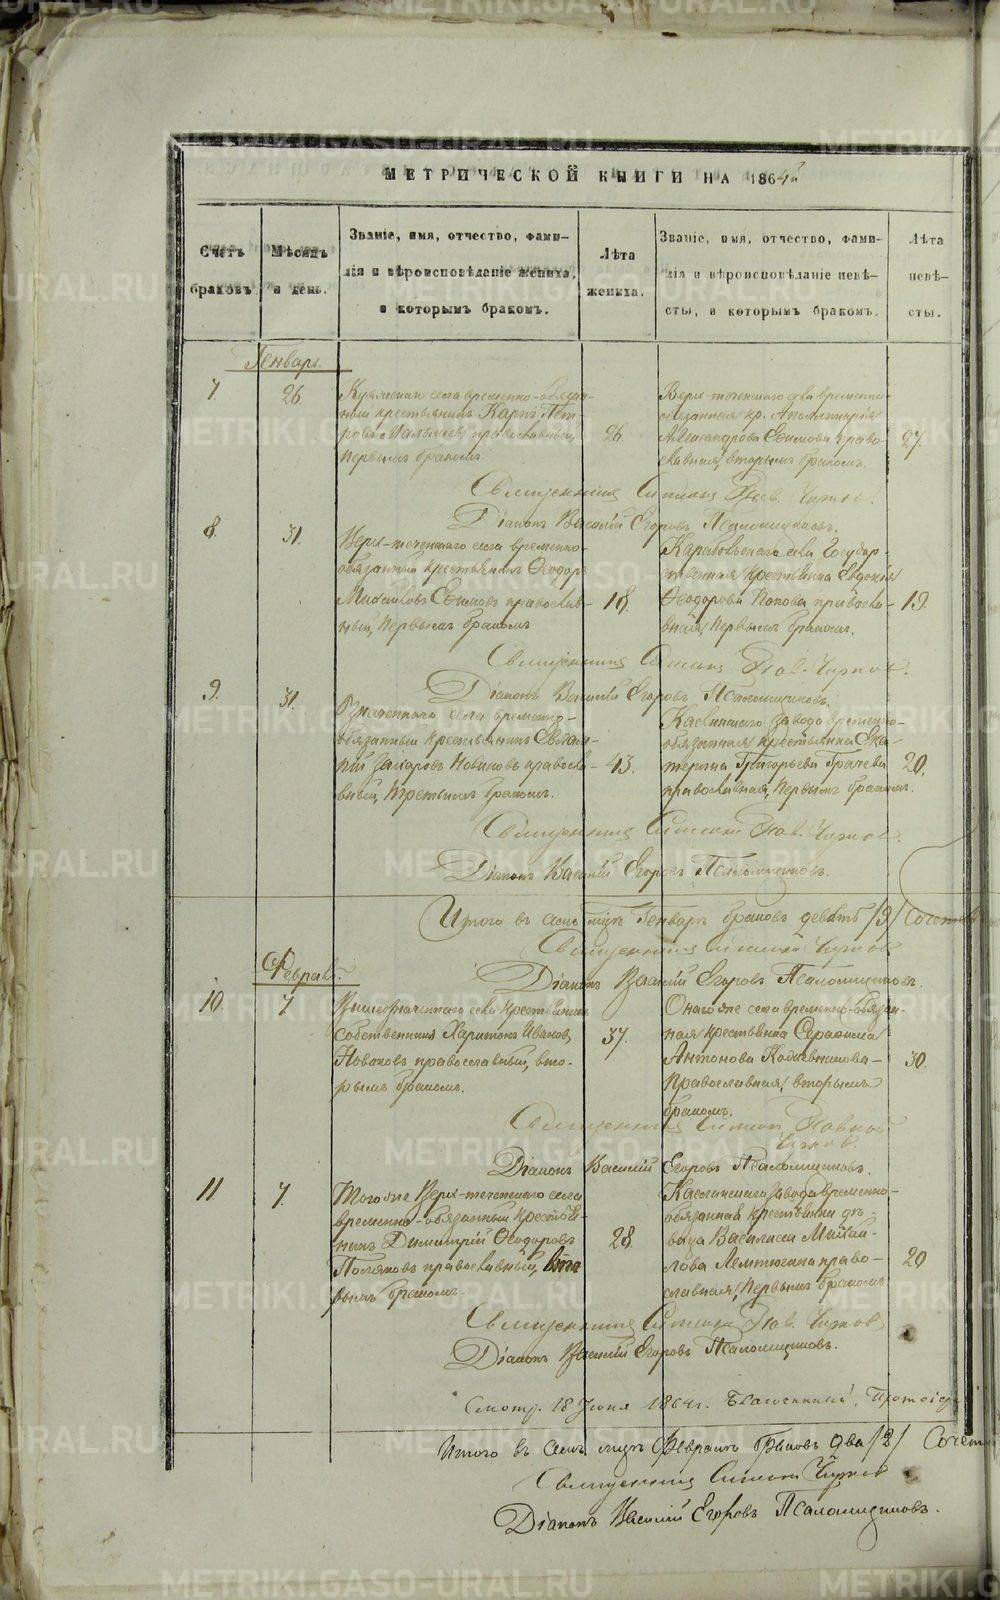 МЕТРИЧЕСКОЙ КНИГИ НА 1864й
Счетъ браковъ.
Мѣсяцъ и день.
Званіе, имя, отчество, фами-
лія и вѣроисповѣданіе жениха,
и которымъ бракомъ.
Лѣта
жениха.
Званіе, имя, отчество, фами-
лія и вѣроисповѣданіе невѣ-
сты, и которымъ бракомъ.
Лѣта
невѣ-
сты.
Генварь.
7
26
села временно-обязан-
ный крестьянинъ Карпъ Пет-
ровъ православный,
первымъ бракомъ
26.
Верх-теченскаго временно-
обязанная кр. Аполлинарія
Александрова Ефимова право-
славная, вторымъ бракомъ.
27.
Священникъ Симеонъ Пав. Чирковъ.
Діаконъ Василій Егоровъ Псаломщиковъ.
8.
31.
Верх-теченскаго села временно-
обязанный крестьянинъ Ѳеодоръ
Михайловъ Ефимовъ православ-
ный, первымъ бракомъ
18.
села Государ-
ственная крестьянка Евдокія
Ѳеодорова Попова правосла-
вная, первымъ бракомъ.
19.
Священникъ Симеонъ Пав. Чирковъ.
Діаконъ Василій Егоровъ Псаломщиковъ.
9.
31.
села временно-
обязанный крестьянинъ
Захаровъ Новиковъ правосла-
вный, третьимъ бракомъ.
43.
Каслинскаго завода временно-
обязанная крестьянка Ека-
терина Григорьева Грачева
православная, первымъ бракомъ.
20.
Священникъ Симеонъ Пав. Чирковъ.
Діаконъ Василій Егоровъ Псаломщиковъ.
Итого въ семъ м-цѣ Генварѣ браковъ девять /9/
Священникъ Симеонъ Чирковъ
Діаконъ Василій Егоровъ Псаломщиковъ.
Февраль.
10
7
Вышеозначеннаго села крестьянинъ
собственникъ Харитонъ Ивановъ
Новаковъ православный, вто-
рымъ бракомъ.
37.
Онаго же села временно-обязан-
ная крестьянка Серафима
Антонова
православная, вторымъ
бракомъ.
30.
Священникъ Симеонъ Павловъ
Чирковъ
Діаконъ Василій Егоровъ Псаломщиковъ.
11
7.
Того же Верх-теченскаго села
временно-обязанный крестья-
нинъ Димитрій Ѳеодоровъ
Поляковъ православный, вто
рымъ бракомъ.
28.
Каслинскаго завода временно-
обязанная крестьянка дѣ-
вица Василиса Михай-
лова право-
славная, первымъ бракомъ
20
Священникъ Симеонъ Пав. Чирковъ
Діаконъ Василій Егоровъ Псаломщиковъ.
Смотр. 18 Іюня 1864г.
Итого въ семъ м-цѣ Февралѣ браковъ два /2/
Священникъ Симеонъ Чирковъ
Діаконъ Василій Егоровъ Псаломщиковъ.
METRIKI.GASO-URAL.RU